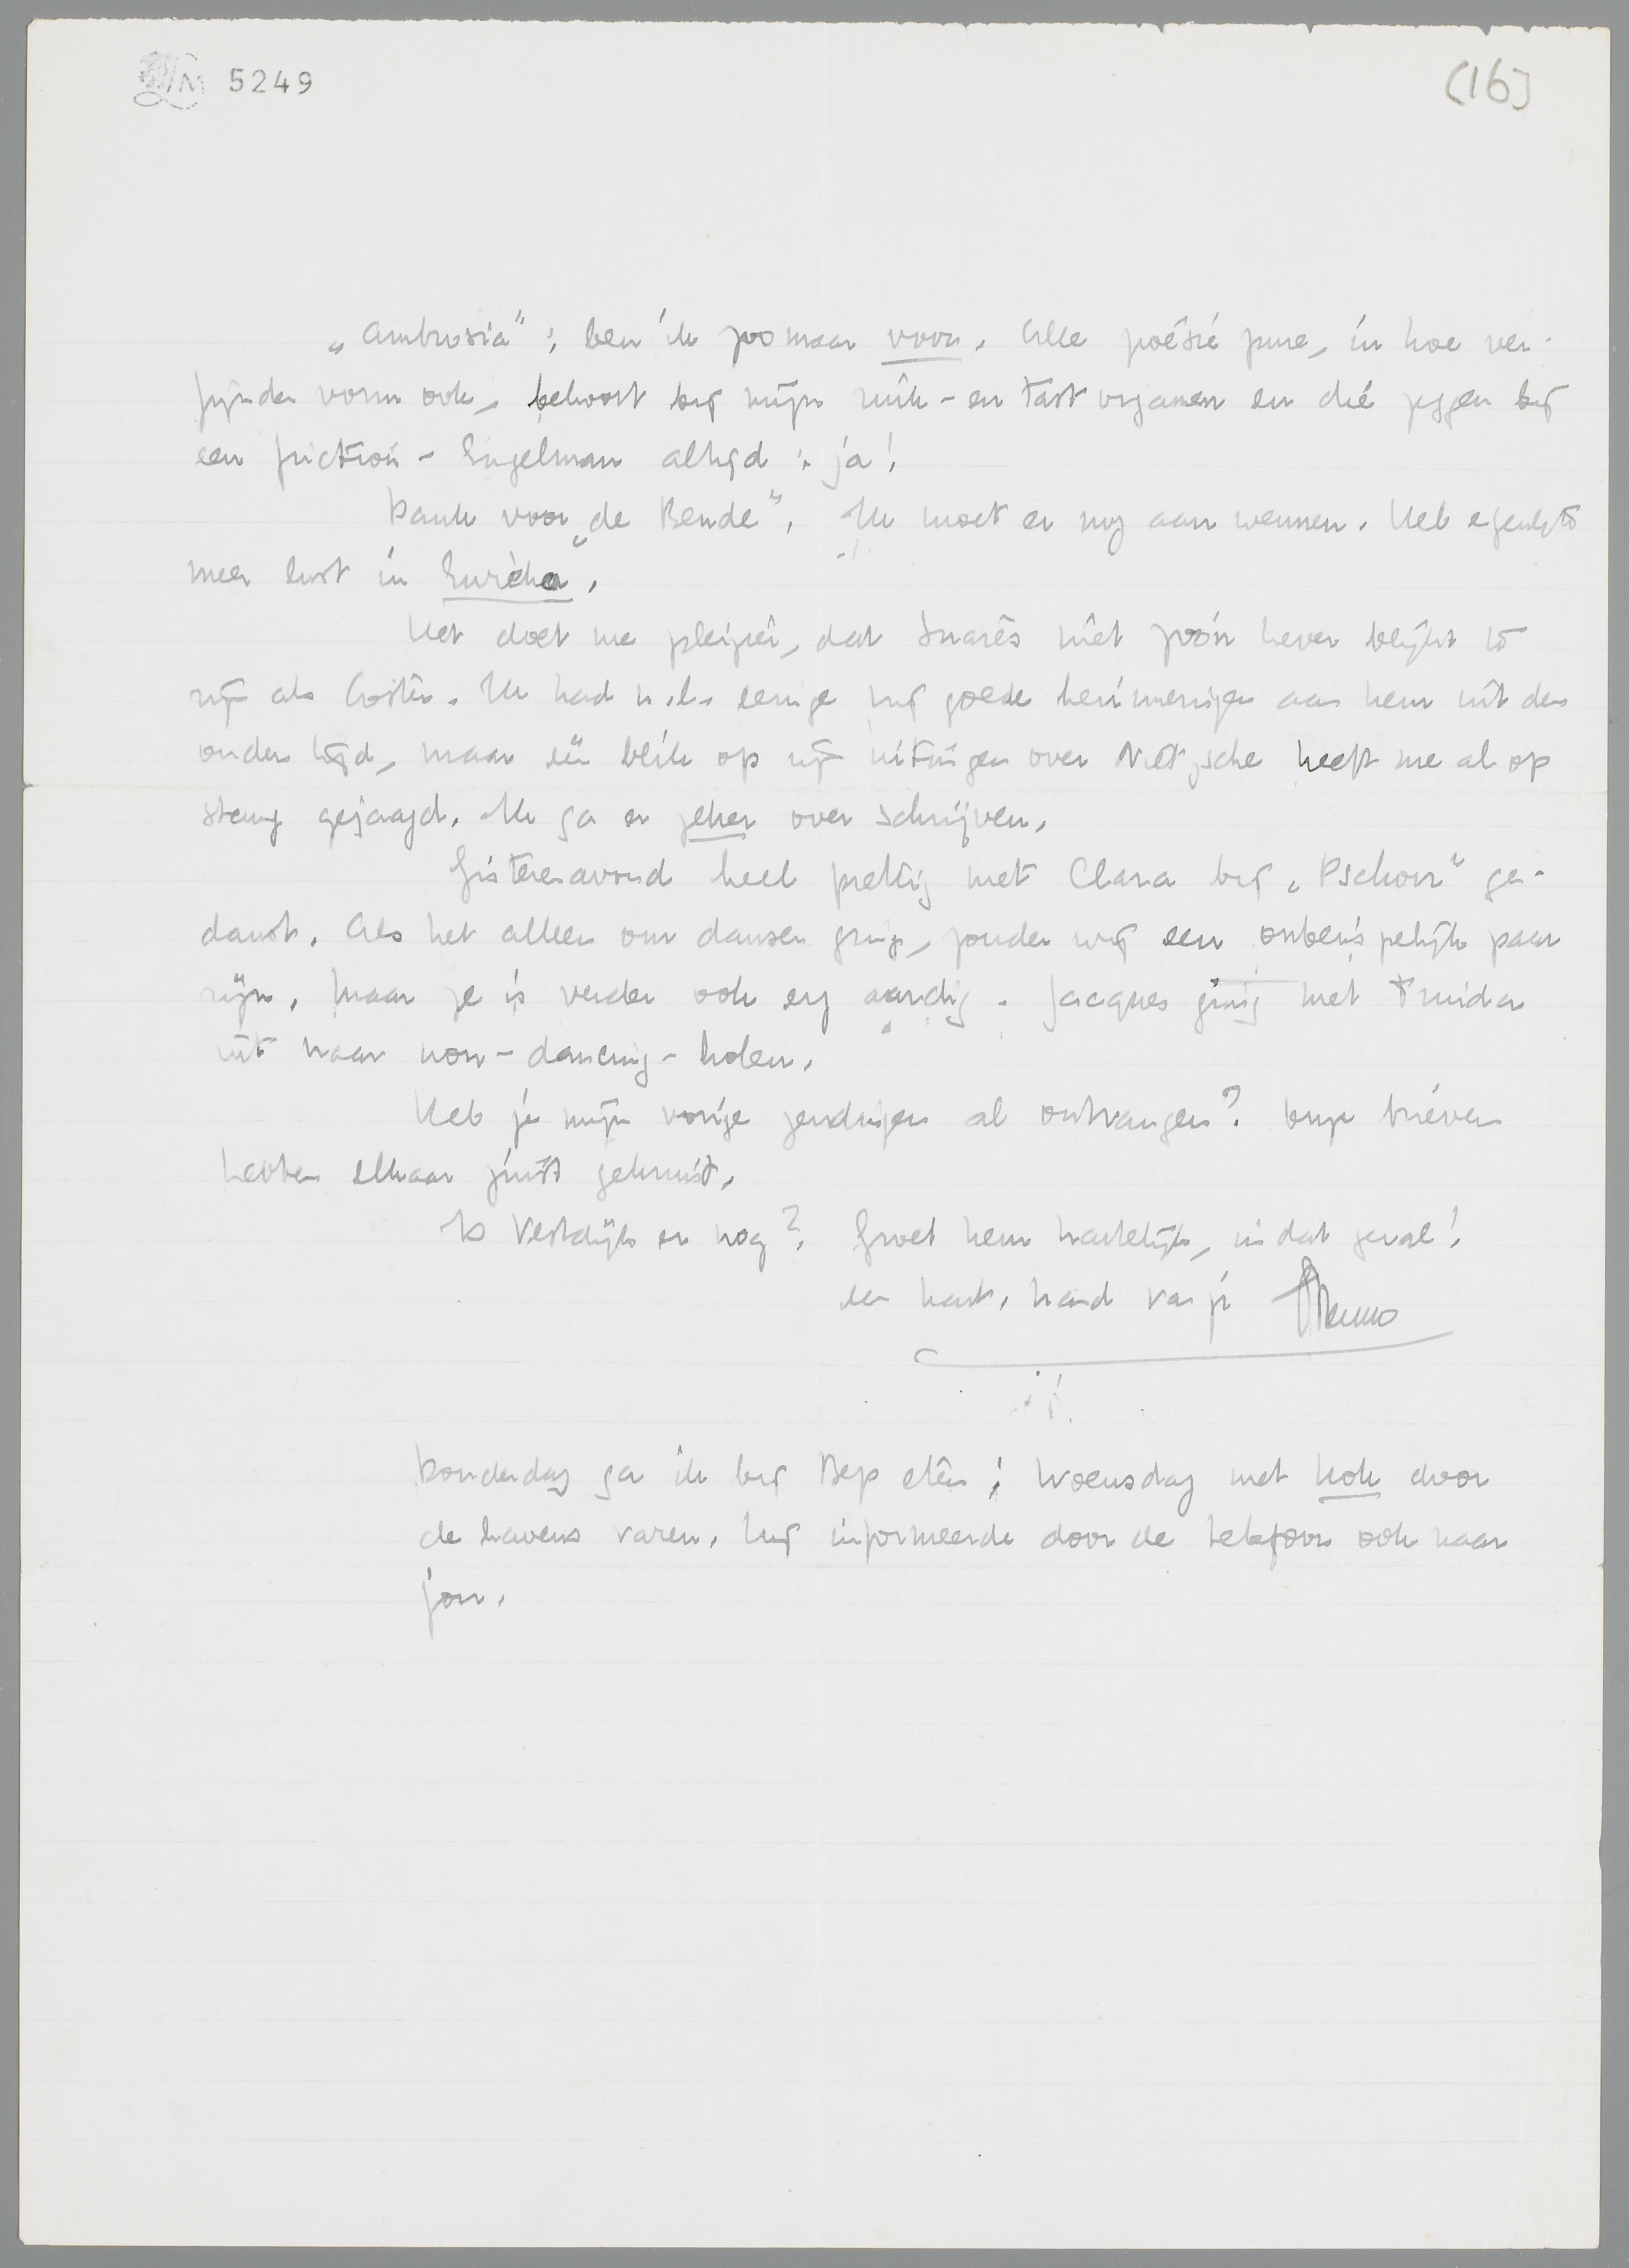 LM 5249
(16)
„Ambrosia”: ben ik zoo maar voor. Alle poésie pure, in hoe ver-
fijnden vorm ook, behoort bij mijn ruik- en tastorganen en die zeggen bij
een friction-Engelman altijd: ja!
Dank voor „de Bende”. Ik moet er nog aan wennen. Heb eigenlijk
meer lust in Eurèka.
Het doet me plezier, dat Suarès niet zoo'n lever blijkt te
zijn als Coster. Ik had n.l. eenige mij goede herinneringen aan hem uit den
ouden tijd, maar één blik op zijn uitingen over Nietzsche heeft me al op
stang gejaagd. Ik ga er zeker over schrijven.
Gisterenavond heel prettig met Clara bij „Pschorr” ge-
danst. Als het alleen om dansen ging, zouden wij een onberispelijk paar
zijn. Maar ze is verder ook erg aardig. Jacques ging met Truida
uit naar non-dancing-holen.
Heb je mijn vorige zendingen al ontvangen? Onze brieven
hebben elkaar juist gekruist.
Is Vestdijk er nog? Groet hem hartelijk, in dat geval!
een hart. hand van je Menno
Donderdag ga ik bij Bep eten; Woensdag met Kok door
de havens varen. Hij informeerde door de telefoon ook naar
jou.